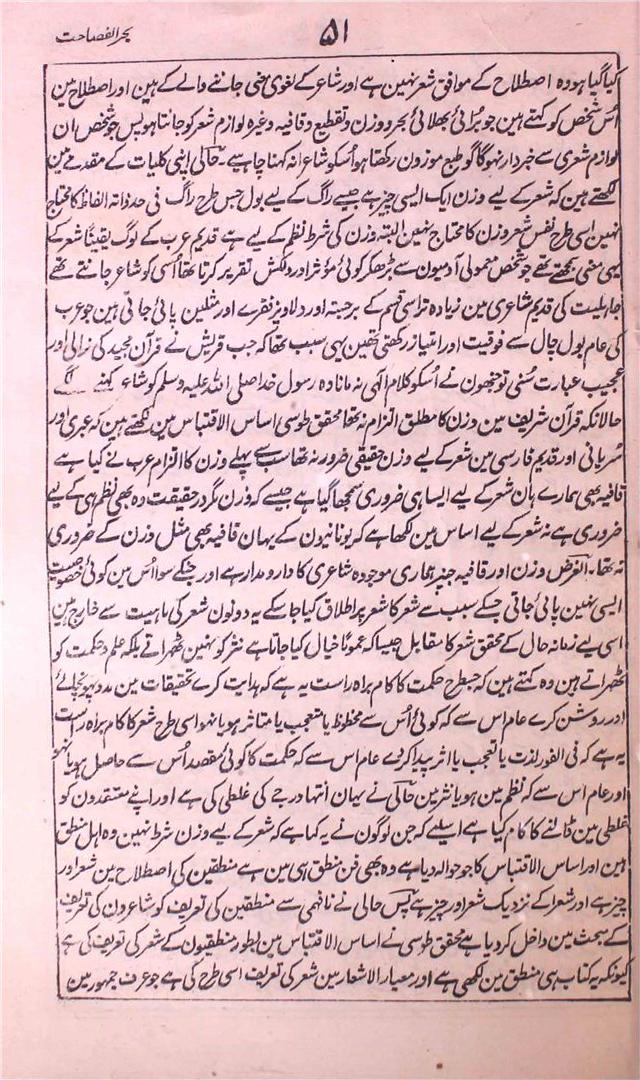 ۵۱
بحر الفصاحت
کیا گیا ہو وہ اصطلاح کے موافق شعر نہین ہے اور شاعر کے لغوی معنی جاننے والے کے ہین اور اصطلاح مین
اُس شخص کو کہتے ہین جو بُرائی بھلائی بحر و وزن و تقطیع و قافیہ وغیرہ لوازم شعر کو جانتا ہو پس جو شخص ان
لوازم شعری سے خبردار نہوگا گو طبع موزون رکھتا ہو اُسکو شاعر نہ کہنا چاہیے۔ حالی اپنی کلیات کے مقدمے مین
لکھتے ہین کہ شعر کے لیے وزن ایک ایسی چیز ہے جیسے راگ کے لیے بول جس طرح راگ فی حد ذاتہ الفاظ کا محتاج
نہین اسی طرح نفس شعر وزن کا محتاج نہین البتہ وزن کی شرط نظم کے لیے ہے قدیم عرب کے لوگ یقیناً شعر کے
یہی معنی سمجھتے تھے جو شخص معمولی آدمیون سے بڑھکر کوئی مؤثر اور دلکش تقریر کرتا تھا اُسی کو شاعر جانتے تھے
جاہلیت کی قدیم شاعری مین زیادہ تر اسی قسم کے برجستہ اور دلاویز فقرے اور مثلین پائی جاتی ہین جو عرب
کی عام بول چال سے فوقیت اور امتیاز رکھتی تھین یہی سبب تھا کہ جب قریش نے قرآن مجید کی نرالی اور
عجیب عبارت سُنی تو جنھون نے اُسکو کلام الٰہی نہ مانا وہ رسول خدا صلی اللہ علیہ وسلم کو شاعر کہنے لگے
حالانکہ قرآن شریف مین وزن کا مطلق التزام نہ تھا محقق طوسی اساس الاقتباس مین لکھتے ہین کہ عبری اور
سُریانی اور قدیم فارسی مین شعر کے لیے وزن حقیقی ضرور نہ تھا سب سے پہلے وزن کا التزام عرب نے کیا ہے
قافیہ بھی ہمارے ہان شعر کے لیے ایسا ہی ضروری سمجھا گیا ہے جیسے کہ وزن مگر در حقیقت وہ بھی نظم ہی کے لیے
ضروری ہے نہ شعر کے لیے اساس مین لکھا ہے کہ یونانیون کے یہان قافیہ بھی مثل وزن کے ضروری
نہ تھا۔ الغرض وزن اور قافیہ جنپر ہماری موجودہ شاعری کا دار و مدار ہے اور جنکے سوا اس مین کوئی خصوصیت
ایسی نہین پائی جاتی جسکے سبب سے شعر کا شعر پر اطلاق کیا جا سکے یہ دونون شعر کی ماہیت سے خارج ہین
اسی لیے زمانہ حال کے محقق شعر کا مقابل جیسا کہ عموماً خیال کیا جاتا ہے نثر کو نہین ٹھہراتے بلکہ علم و حکمت کو
ٹھہراتے ہین وہ کہتے ہین کہ جسطرح حکمت کا کام براہ راست یہ ہے کہ ہدایت کرے تحقیقات مین مدد پہونچائے
اور روشن کرے عام اس سے کہ کوئی اُس سے محظوظ یا متعجب یا متاثر ہو یا نہو اسی طرح شعر کا کام براہ راست
یہ ہے کہ فی الفور لذت یا تعجب یا اثر پیدا کر دے عام اس سے کہ حکمت کا کوئی مقصد اُس سے حاصل ہو یا نہو
اور عام اس سے کہ نظم مین ہو یا نثر مین حالی نے یہان انتہا درجے کی غلطی کی ہے اور اپنے معتقدون کو
غلطی مین ڈالنے کا کام کیا ہے اسلیے کہ جن لوگون نے یہ کہا ہے کہ شعر کے لیے وزن شرط نہین وہ اہل منطق
ہین اور اساس الاقتباس کا جو حوالہ دیا ہے وہ بھی فن منطق ہی مین ہے منطقین کی اصطلاح مین شعر اور
چیز ہے اور شعرا کے نزدیک شعر اور چیز ہے پس حالی نے نافہمی سے منطقین کی تعریف کو شاعرون کی تعریف
کے مبحث مین داخل کر دیا ہے محقق طوسی نے اساس الاقتباس مین بطور منطقیون کے شعر کی تعریف کی ہے
کیونکہ یہ کتاب ہی منطق مین لکھی ہے اور معیار الاشعار مین شعر کی تعریف اسی طرح کی ہے جو عرف جمہور مین